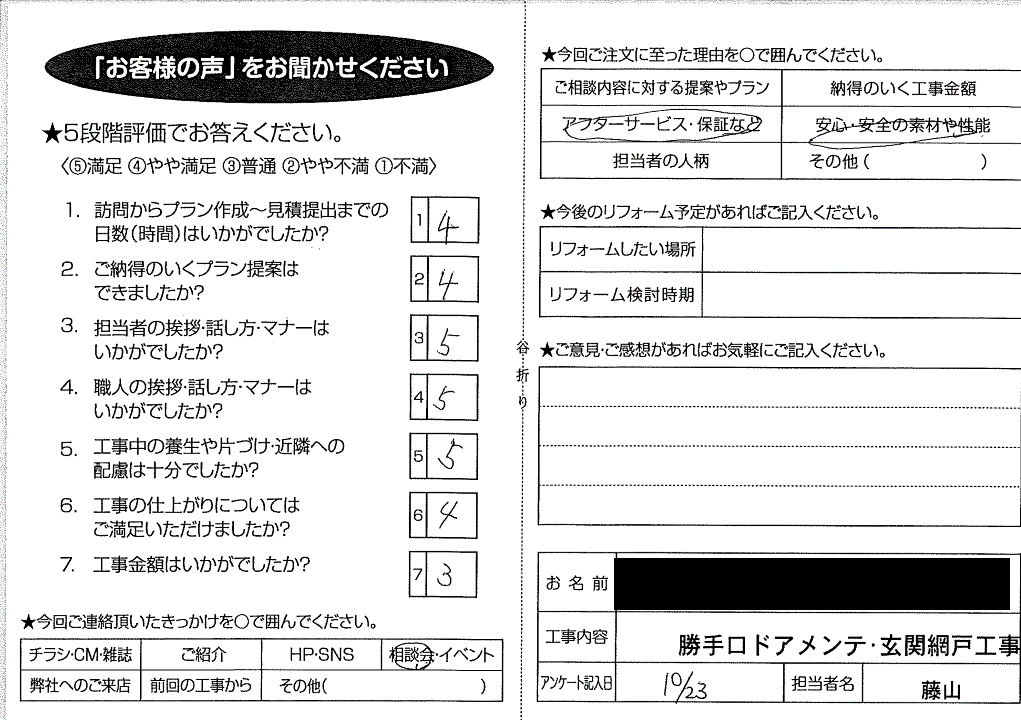 「お客様の声」をお聞かせください
★5段階評価でお答えください。
〈⑤満足 ④やや満足 ③普通 ②やや不満 ①不満〉
1. 訪問からプラン作成～見積提出までの
日数(時間)はいかがでしたか?
1 4
2. ご納得のいくプラン提案は
できましたか?
2 4
3. 担当者の挨拶・話し方・マナーは
いかがでしたか?
3 5
4. 職人の挨拶・話し方・マナーは
いかがでしたか?
4 5
5. 工事中の養生や片づけ・近隣への
配慮は十分でしたか?
5 5
6. 工事の仕上がりについては
ご満足いただけましたか?
6 4
7. 工事金額はいかがでしたか?
7 3
★今回ご連絡頂いたきっかけを○で囲んでください。
チラシ・CM・雑誌 ご紹介 HP・SNS 相談会・イベント
弊社へのご来店 前回の工事から その他( )
谷折り
★今回ご注文に至った理由を○で囲んでください。
ご相談内容に対する提案やプラン 納得のいく工事金額
アフターサービス・保証など 安心・安全の素材や性能
担当者の人柄 その他( )
★今後のリフォーム予定があればご記入ください。
リフォームしたい場所
リフォーム検討時期
★ご意見・ご感想があればお気軽にご記入ください。
お名前
工事内容 勝手口ドアメンテ・玄関網戸工事
アンケート記入日 10/23 担当者名 藤山